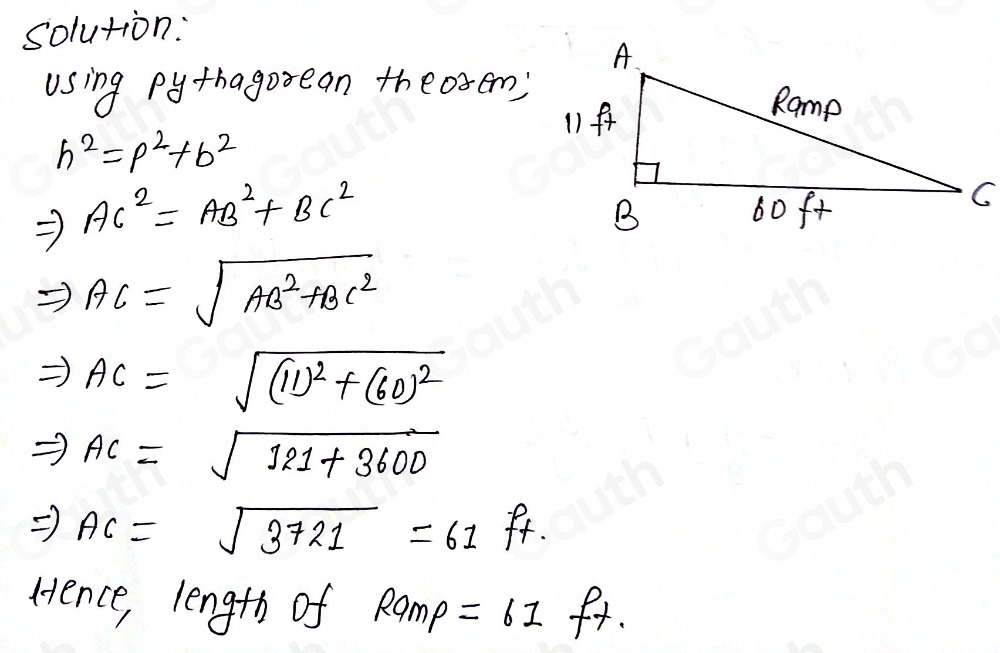 Solution:
Using pythagorean theorem;
h²=p²+b²
⇒ AC² = AB² + BC²
⇒ AC = √(AB²+BC²)
⇒ AC = √((11)² + (60)²)
⇒ AC = √(121 + 3600)
⇒ AC = √3721 = 61 ft.
Hence, length of Ramp = 61 ft.
A
11 ft
Ramp
B
60 ft
C
Gauth